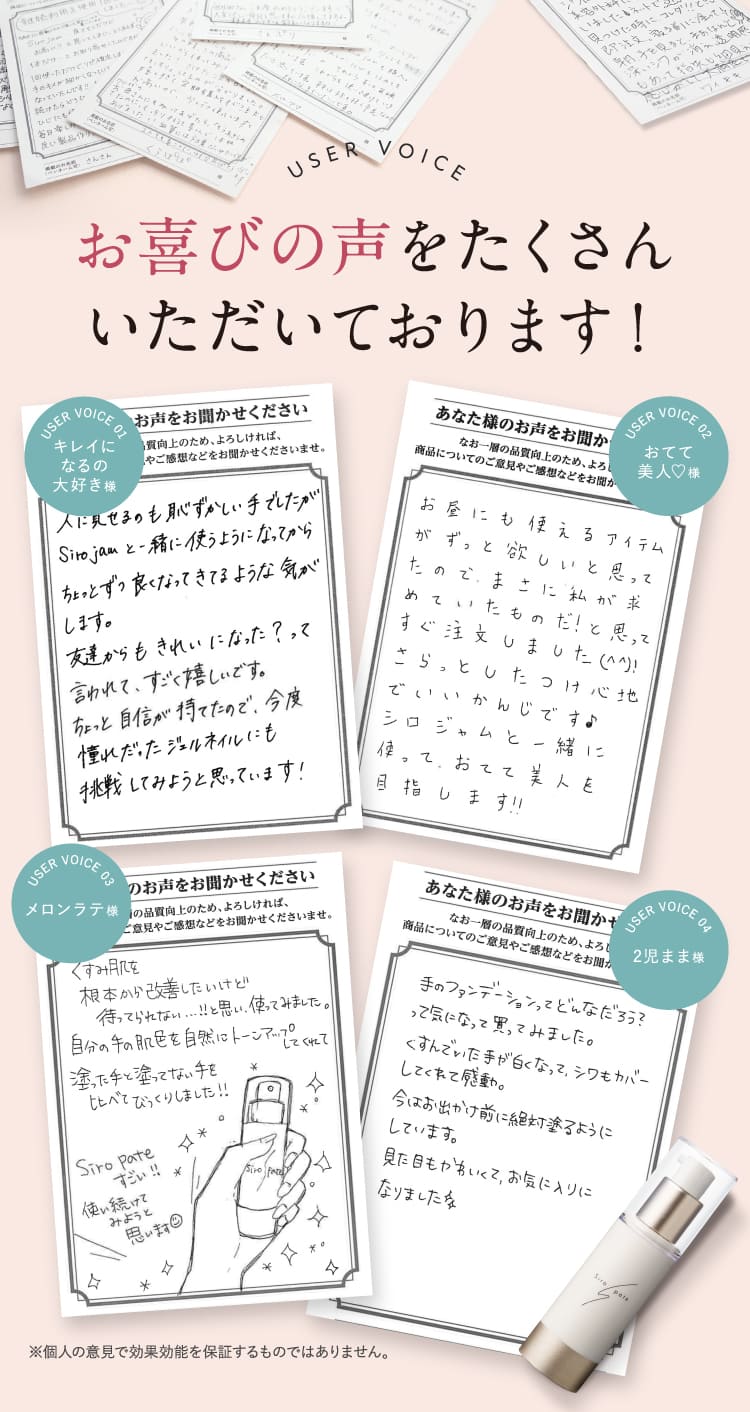 USER VOICE
お喜びの声をたくさん
いただいております!
USER VOICE 01
キレイに
なるの
大好き様
のお声をお聞かせください
品質向上のため、よろしければ、
やご感想などをお聞かせくださいませ。
人に見せるのも恥ずかしい手でしたが
Sirojamと一緒に使うようになってから
ちょっとずつ良くなってきてるような気が
します。
友達からもきれいになった?って
言われて、すごく嬉しいです。
ちょっと自信が持てたので、今度
憧れだったジェルネイルにも
挑戦してみようと思っています!
USER VOICE 02
おてて
美人♡様
あなた様のお声をお聞か
なお一層の品質向上のため、よろし
商品についてのご意見やご感想などをお聞か
お昼にも使えるアイテム
がずっと欲しいと思って
たので、まさに私が求
めていたものだ!と思って
すぐ注文しました(^^)!
さらっとしたつけ心地
でいいかんじです♪
シロジャムと一緒に
使って、おてて美人を
目指します!!
USER VOICE 03
メロンラテ様
のお声をお聞かせください
の品質向上のため、よろしければ、
ご意見やご感想などをお聞かせくださいませ。
くすみ肌を
根本から改善したいけど
待ってられない…!!と思い、使ってみました。
自分の手の肌色を自然にトーンアップしてくれて
塗った手と塗ってない手を
比べてびっくりしました!!
Siro pate
すごい!!
使い続けて
みようと
思います☺
Siro pate
USER VOICE 04
2児まま様
あなた様のお声をお聞か
なお一層の品質向上のため、よろし
商品についてのご意見やご感想などをお聞
手のファンデーションってどんなだろう?
って気になって買ってみました。
くすんでいた手が白くなって、シワもカバー
してくれて感動。
今はお出かけ前に絶対塗るように
しています。
見た目もかわいくて、お気に入りに
なりました
Siro pate
※個人の意見で効果効能を保証するものではありません。